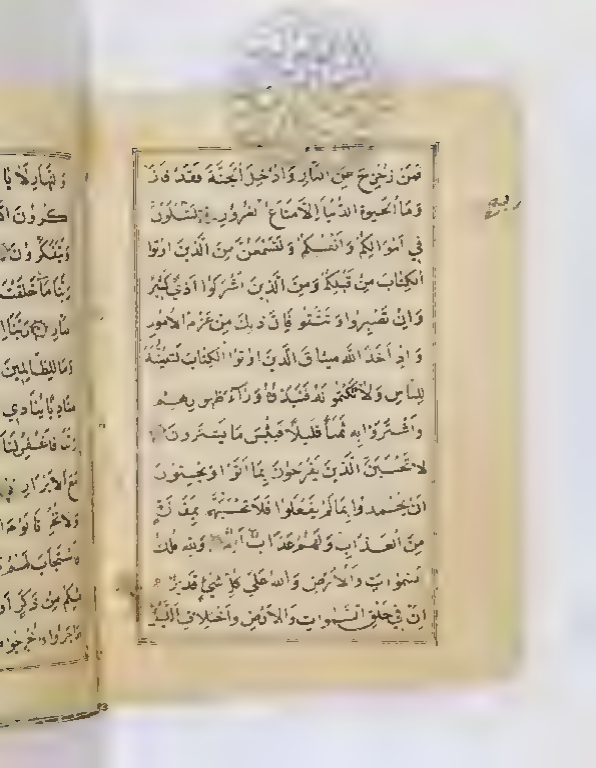 فَمَنْ زُحْزِحَ عَنِ النَّارِ وَاُدْخِلَ الْجَنَّةَ فَقَدْ فَازَ
وَمَا الْحَيٰوةُ الدُّنْيَا اِلَّا مَتَاعُ الْغُرُورِ لَتُبْلَوُنَّ
فِي اَمْوَالِكُمْ وَاَنْفُسِكُمْ وَلَتَسْمَعُنَّ مِنَ الَّذِينَ اُوتُوا
الْكِتَابَ مِنْ قَبْلِكُمْ وَمِنَ الَّذِينَ اَشْرَكُوا اَذًى كَثِيرًا
وَاِنْ تَصْبِرُوا وَتَتَّقُوا فَاِنَّ ذٰلِكَ مِنْ عَزْمِ الْاُمُورِ
وَاِذْ اَخَذَ اللّٰهُ مِيثَاقَ الَّذِينَ اُوتُوا الْكِتَابَ لَتُبَيِّنُنَّهُ
لِلنَّاسِ وَلَا تَكْتُمُونَهُ فَنَبَذُوهُ وَرَآءَ ظُهُورِهِمْ
وَاشْتَرَوْا بِهِ ثَمَنًا قَلِيلًا فَبِئْسَ مَا يَشْتَرُونَ
لَا تَحْسَبَنَّ الَّذِينَ يَفْرَحُونَ بِمَا اَتَوْا وَيُحِبُّونَ
اَنْ يُحْمَدُوا بِمَا لَمْ يَفْعَلُوا فَلَا تَحْسَبَنَّهُمْ بِمَفَازَةٍ
مِنَ الْعَذَابِ وَلَهُمْ عَذَابٌ اَلِيمٌ وَلِلّٰهِ مُلْكُ
السَّمٰوَاتِ وَالْاَرْضِ وَاللّٰهُ عَلٰى كُلِّ شَيْءٍ قَدِيرٌ
اِنَّ فِي خَلْقِ السَّمٰوَاتِ وَالْاَرْضِ وَاخْتِلَافِ الَّيْلِ
وَالنَّهَارِ لَاٰيَا
رَبَّنَا مَا خَلَقْتَ
وَمَا لِلظَّالِمِينَ
مُنَادِيًا يُنَادِي
رَبَّنَا فَاغْفِرْ لَنَا
مَعَ الْاَبْرَارِ
فَاسْتَجَابَ لَهُمْ
مِنْكُمْ مِنْ ذَكَرٍ اَوْ